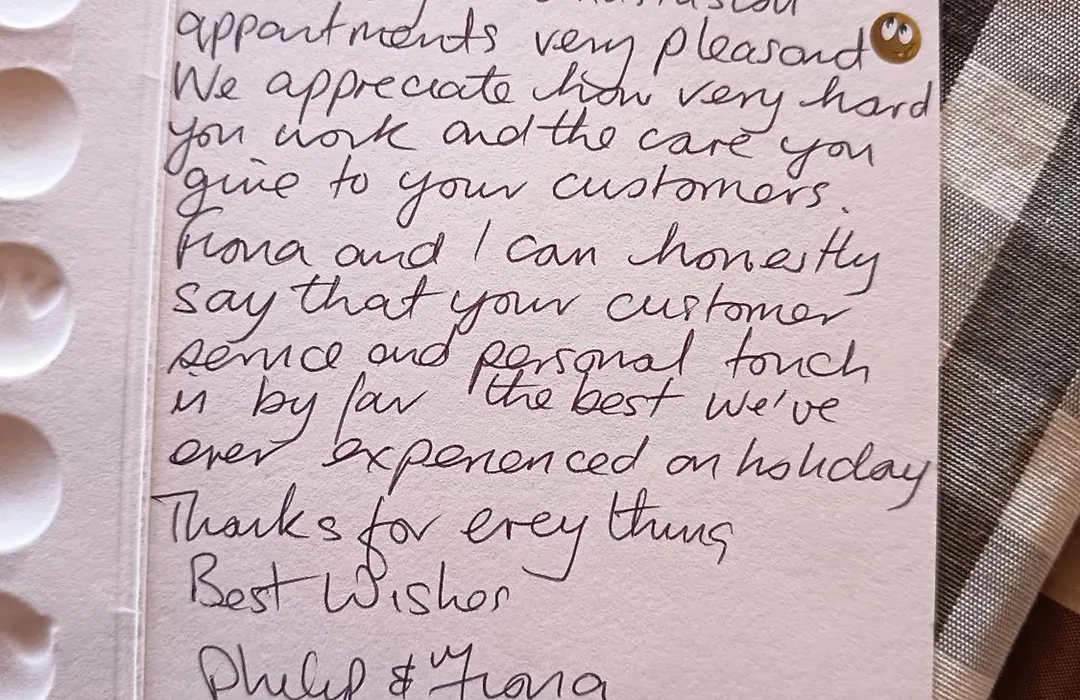 appartments very pleasand
We appreciate how very hard
you work and the care you
give to your customers.
Fiona and I can honestly
say that your customer
service and personal touch
is by far the best we've
ever experienced on holiday
Thanks for erey thing
Best Wishes
Philip & Fiona